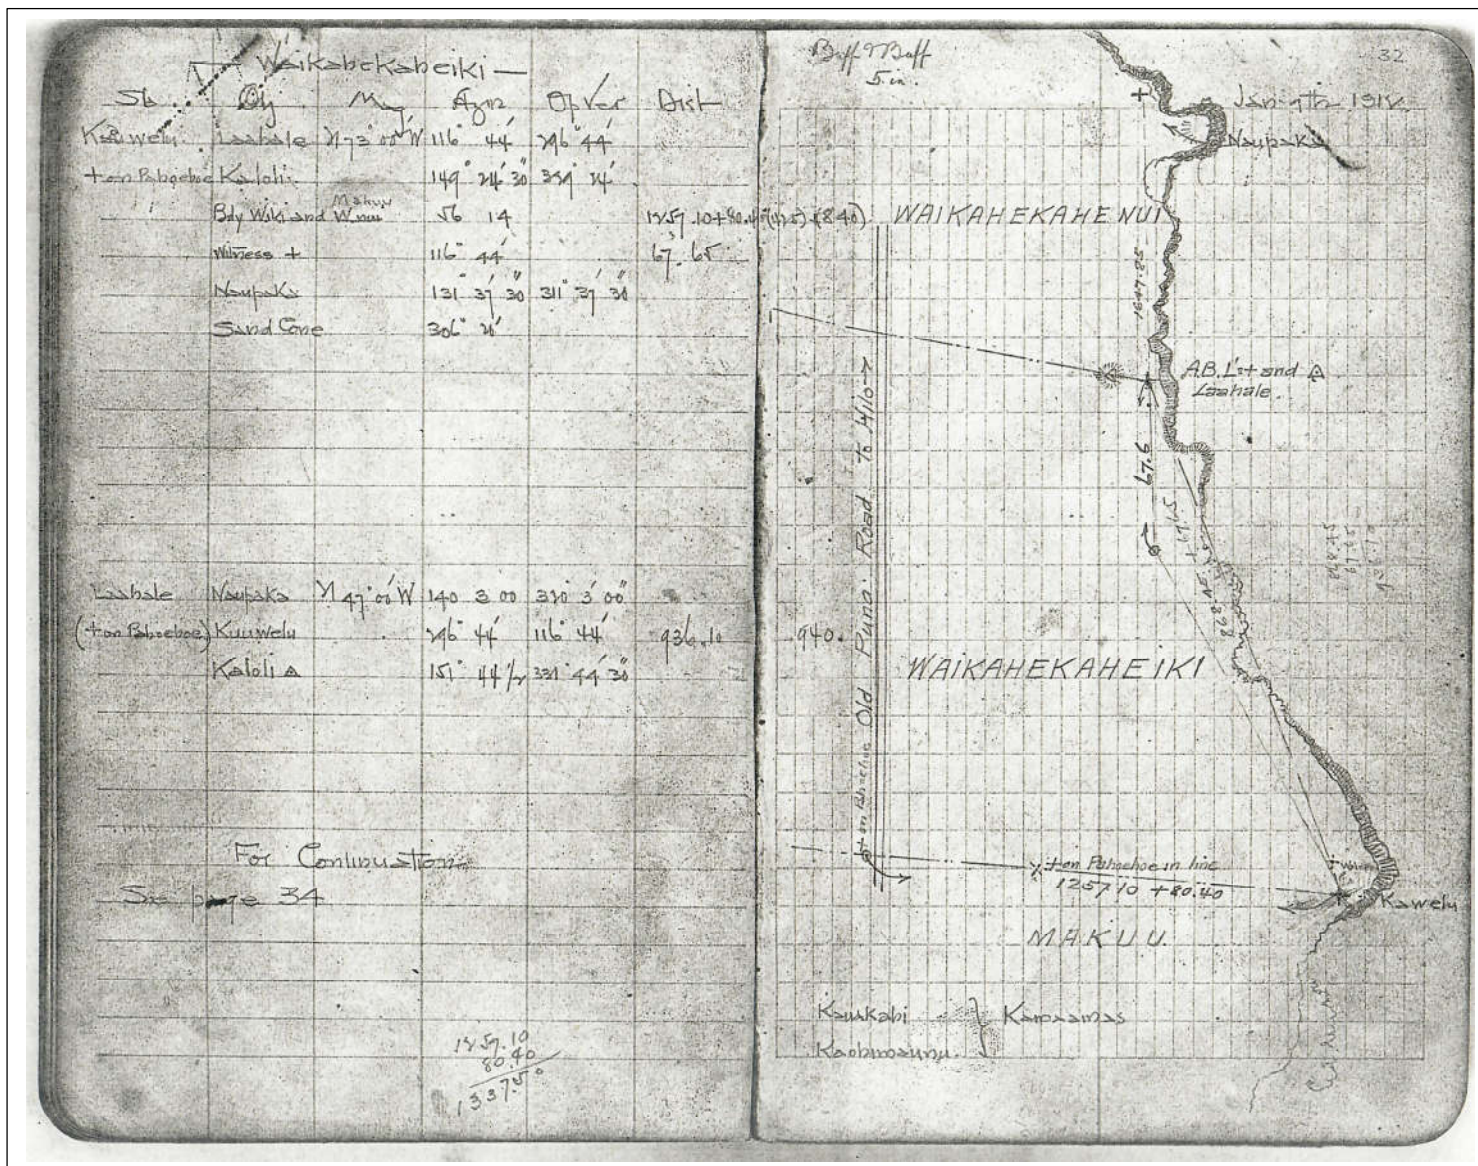 Waikahekaheiki —
Sta. Obj Mag Azm Op Ver Dist
Kauwelu Laahale N 73° 00' W 116° 44' 296° 44'
+ on Pahoehoe Kaloli 149° 24' 30" 329° 24'
Bdy Wiki and W. nui Makuu 56 14 1257.10 + 80.40 (425) (840)
Witness + 116° 44' 67.65
Naupaka 131° 37' 30" 311° 37' 30"
Sand Cone 306° 20'
Laahale Naupaka N 47° 00' W 140 3 00 320 3' 00"
(+ on Pahoehoe) Kuuwelu 296° 44' 116° 44' 936.10 940.
Kaloli △ 151° 44 1/2 331° 44' 30"
For Continuation
See page 34
1257.10
80.40
1337.50
Buff & Buff
5 in.
32
Jan. 7th 1912
Naupaka
WAIKAHEKAHE NUI
1647.25
A.B. L's + and △
Laahale.
67.6
Old Puna Road To Hilo →
+ on Pahoehoe
WAIKAHEKAHEIKI
+ on Pahoehoe in line
1257.10 + 80.40
Kawelu
MAKUU.
Kauakahi
Kamaainas